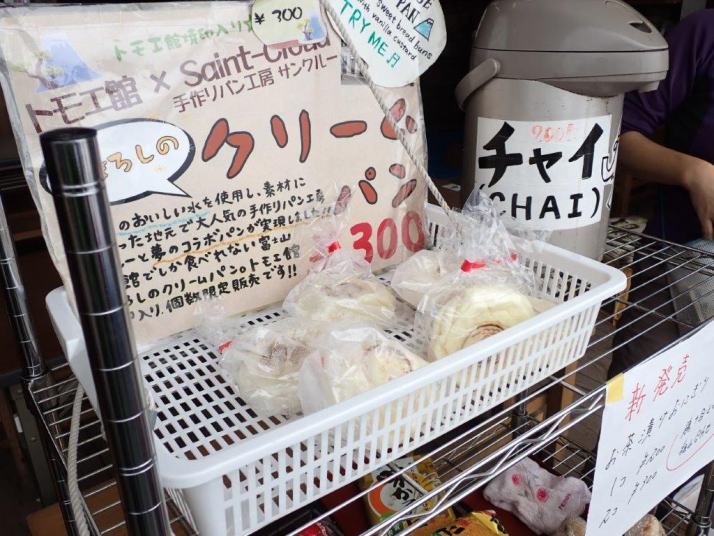 ¥300
PAN
sweet bread buns
with vanilla custard
TRY ME
トモエ館焼印入り
トモエ館 × Saint-Cloud
手作りパン工房 サンクルー
ろしの
クリーム
パン
300
のおいしい水を使用し、素材に
った地元で大人気の手作りパン工房
ーと夢のコラボパンが実現しました!!
館でしか食べれない富士山
ろしのクリームパン。トモエ館
入り、個数限定販売です!!
チャイ
(CHAI)
新発売
お茶漬けおにぎり
1コ ¥200
2コ ¥300